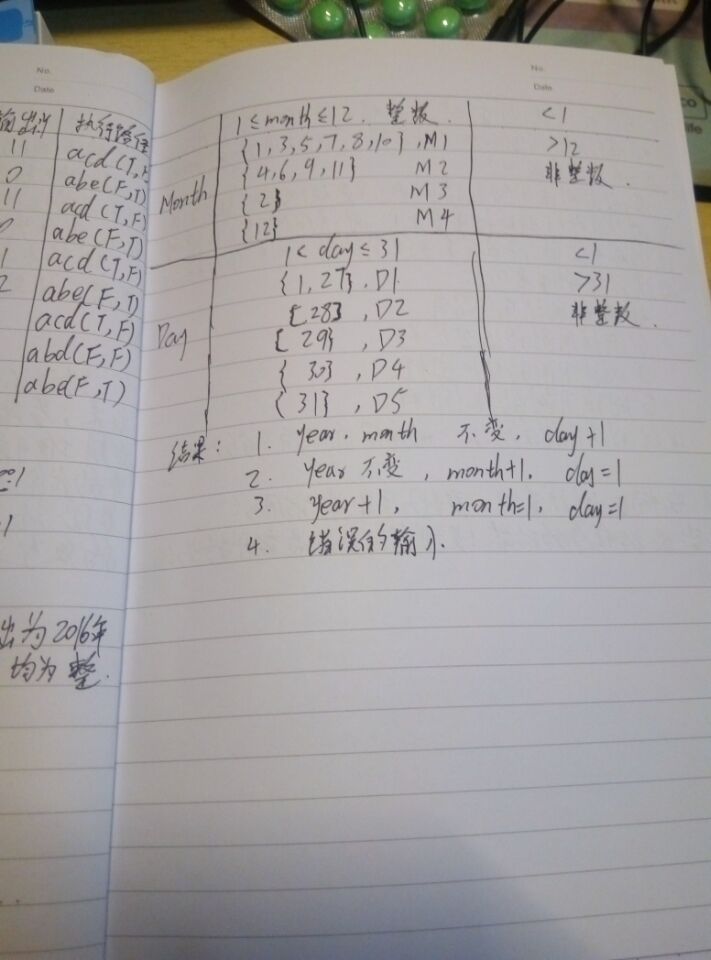 No.
Date
执行路径
11 acd(T,F)
0 abe(F,T)
11 acd(T,F)
abe(F,T)
1 acd(T,F)
2 abe(F,T)
acd(T,F)
abd(F,F)
abe(F,T)
出为2016年
均为整.
No.
Date
Month
1≤month≤12. 整数.
{1,3,5,7,8,10},M1
{4,6,9,11} M2
{2} M3
{12} M4
<1
>12
非整数.
Day
1< day ≤31
{1,27}.D1
{28},D2
{29},D3
{30},D4
{31},D5
<1
>31
非整数.
结果: 1. year.month 不变, day+1
2. year不变, month+1. day=1
3. year+1, month=1, day=1
4. 错误的输入.